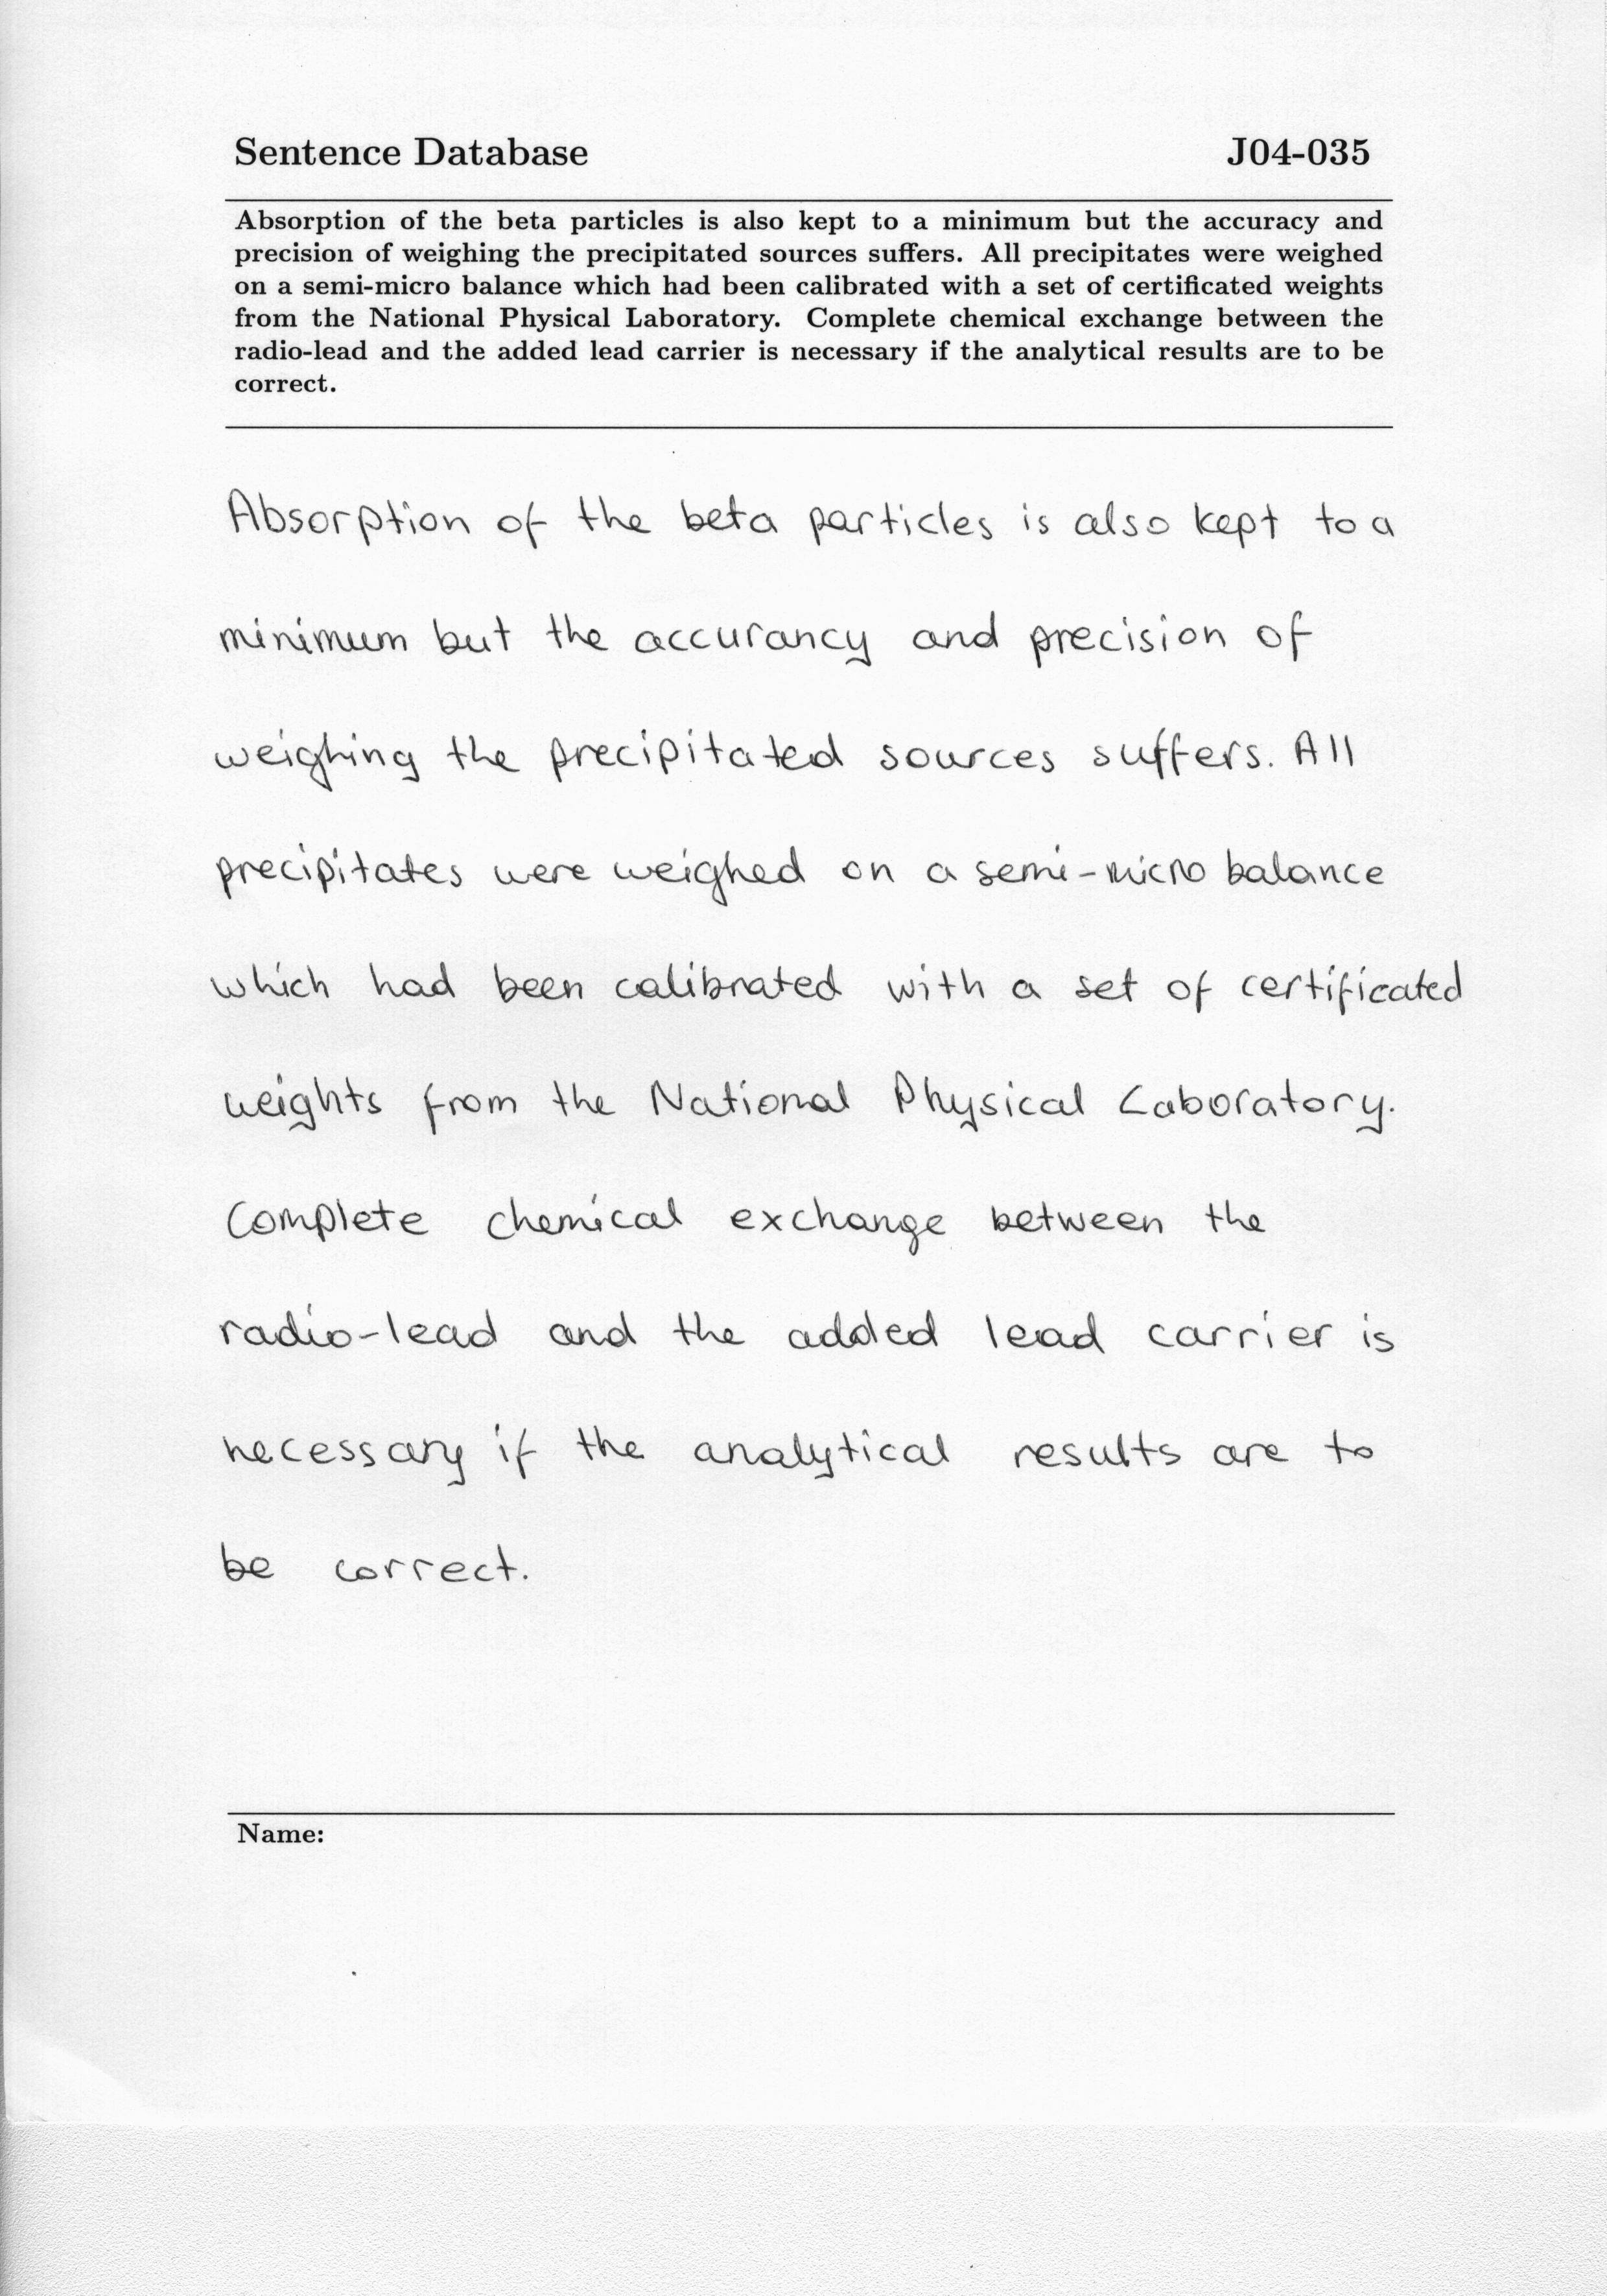 Sentence Database J04-035
Absorption of the beta particles is also kept to a minimum but the accuracy and
precision of weighing the precipitated sources suffers. All precipitates were weighed
on a semi-micro balance which had been calibrated with a set of certificated weights
from the National Physical Laboratory. Complete chemical exchange between the
radio-lead and the added lead carrier is necessary if the analytical results are to be
correct.
Absorption of the beta particles is also kept to a
minimum but the accurancy and precision of
weighing the precipitated sources suffers. All
precipitates were weighed on a semi-micro balance
which had been calibrated with a set of certificated
weights from the National Physical Laboratory.
Complete chemical exchange between the
radio-lead and the added lead carrier is
necessary if the analytical results are to
be correct.
Name: